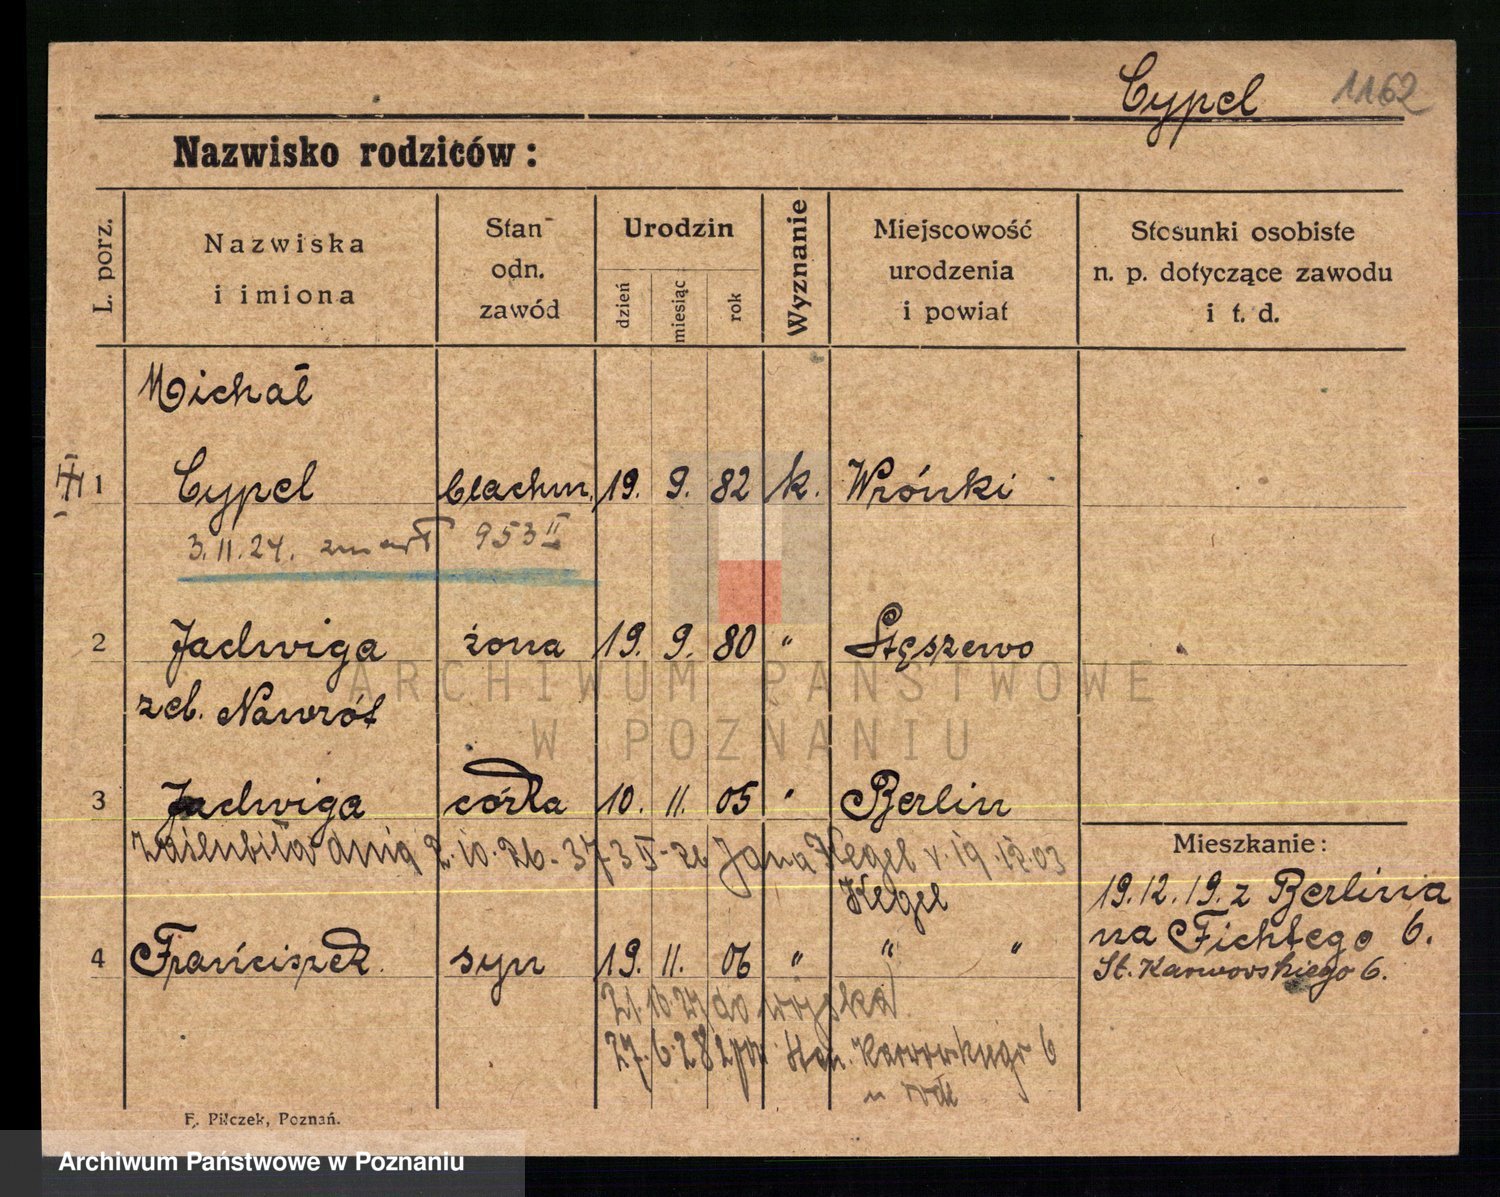 Cypel 1162
Nazwisko rodziców:
L. porz.
Nazwiska
i imiona
Stan
odn.
zawód
Urodzin
dzień
miesiąc
rok
Wyznanie
Miejscowość
urodzenia
i powiat
Stosunki osobiste
n. p. dotyczące zawodu
i t. d.
Michał
1 Cypel blachm. 19. 9. 82 k. Wrónki
3.II.24. zmarł 953 II
2 Jadwiga żona 19. 9. 80 " Stęszewo
zd. Nawrót
3 Jadwiga córka 10. 11. 05 " Berlin
zaślubiła dnia 2.10.26. 373 II-26 Jana Kegel v. 19.12.03
Kegel
4 Franciszek syn 19. 11. 06 " " "
21.10.27 do wojska
27.6.28 Karwowskiego 6
Mieszkanie:
19.12.19. z Berlina
na Fichtego 6.
St. Karwowskiego 6.
F. Pilczek, Poznań.
ARCHIWUM PAŃSTWOWE
W POZNANIU
Archiwum Państwowe w Poznaniu